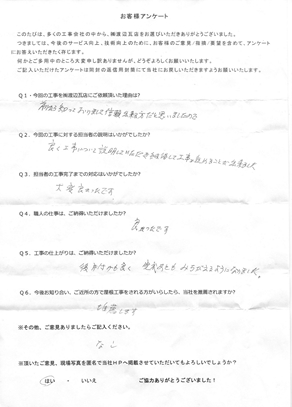 お客様アンケート
このたびは、多くの工事会社の中から、㈱渡辺瓦店をお選びいただきありがとうございました。
つきましては、今後のサービス向上、技術向上のために、お客様のご意見/指摘/要望を含めて、アンケート
にお答えいただきたく存じます。
何かとご多用中のところ大変申し訳ありませんが、どうぞよろしくお願いいたします。
ご記入いただけたアンケートは同封の返信用封筒にて当社にお戻しいただきますようお願いいたします。
Q1・今回の工事を㈱渡辺瓦店にご依頼頂いた理由は?
Q2・今回の工事に対する担当者の説明はいかがでしたか?
良く工事について説明していただき
Q3・担当者の工事完了までの対応はいかがでしたか?
大変良かったです
Q4・職人の仕事は、ご納得いただけましたか?
良かったです
Q5・工事の仕上がりは、ご納得いただけましたか?
後片付も良く
みちがえるようになりました。
Q6・今後お知り合い、ご近所の方で屋根工事をされる方がいらしたら、当社を推薦されますか?
推薦します
※その他、ご意見ありましたらご記入ください。
なし
※頂いたご意見、現場写真を匿名で当社HPへ掲載させていただいてもよろしいでしょうか?
はい ・ いいえ ご協力ありがとうございました!